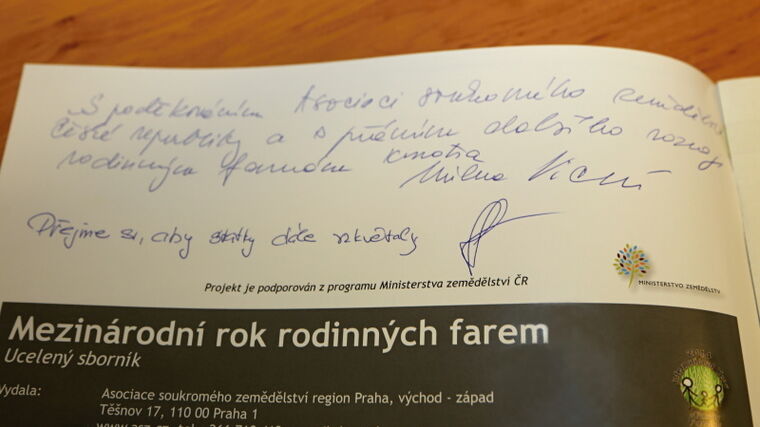 S poděkováním Asociaci soukromého zemědělství
České republiky a s přáním dalšího rozvoje
rodinným farmám
Milena Vicenová
Přejme si, aby statky dále vzkvétaly
Projekt je podporován z programu Ministerstva zemědělství ČR
MINISTERSTVO ZEMĚDĚLSTVÍ
Mezinárodní rok rodinných farem
Ucelený sborník
Vydala:
Asociace soukromého zemědělství region Praha, východ - západ
Těšnov 17, 110 00 Praha 1